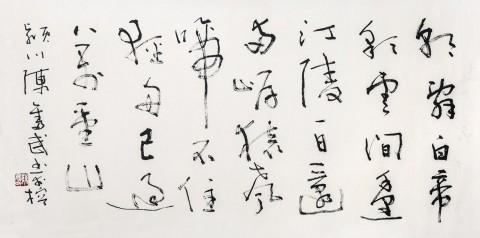 朝辭白帝
彩雲間千里
江陵一日還
兩岸猿聲
啼不住
輕舟已過
萬重山
潁川陳奮武書於榕